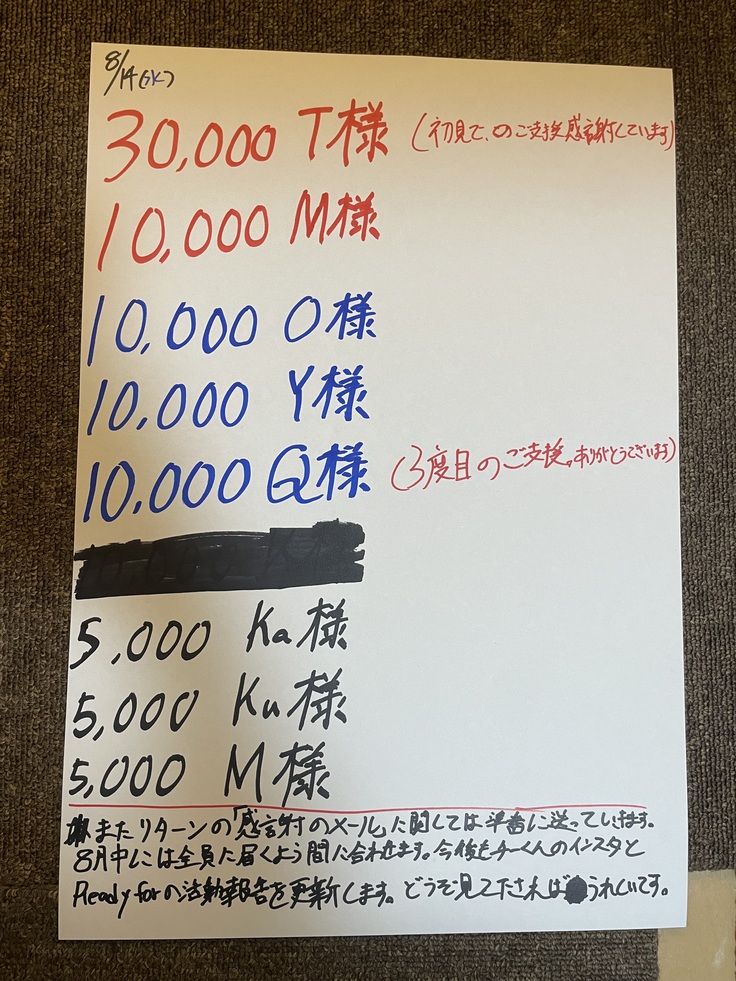 8/14(水)
30,000 T様 (初見で、のご支援感謝しています)
10,000 M様
10,000 O様
10,000 Y様
10,000 Q様 (3度目のご支援。ありがとうございます)
5,000 Ka様
5,000 Ku様
5,000 M様
またリターンの「感謝のメール」に関しては準番に送っていきます。
8月中には全員に届くよう間に合わせます。今後もチーくんのインスタと
Readyforの活動報告を更新します。どうぞ見て下さればうれしいです。